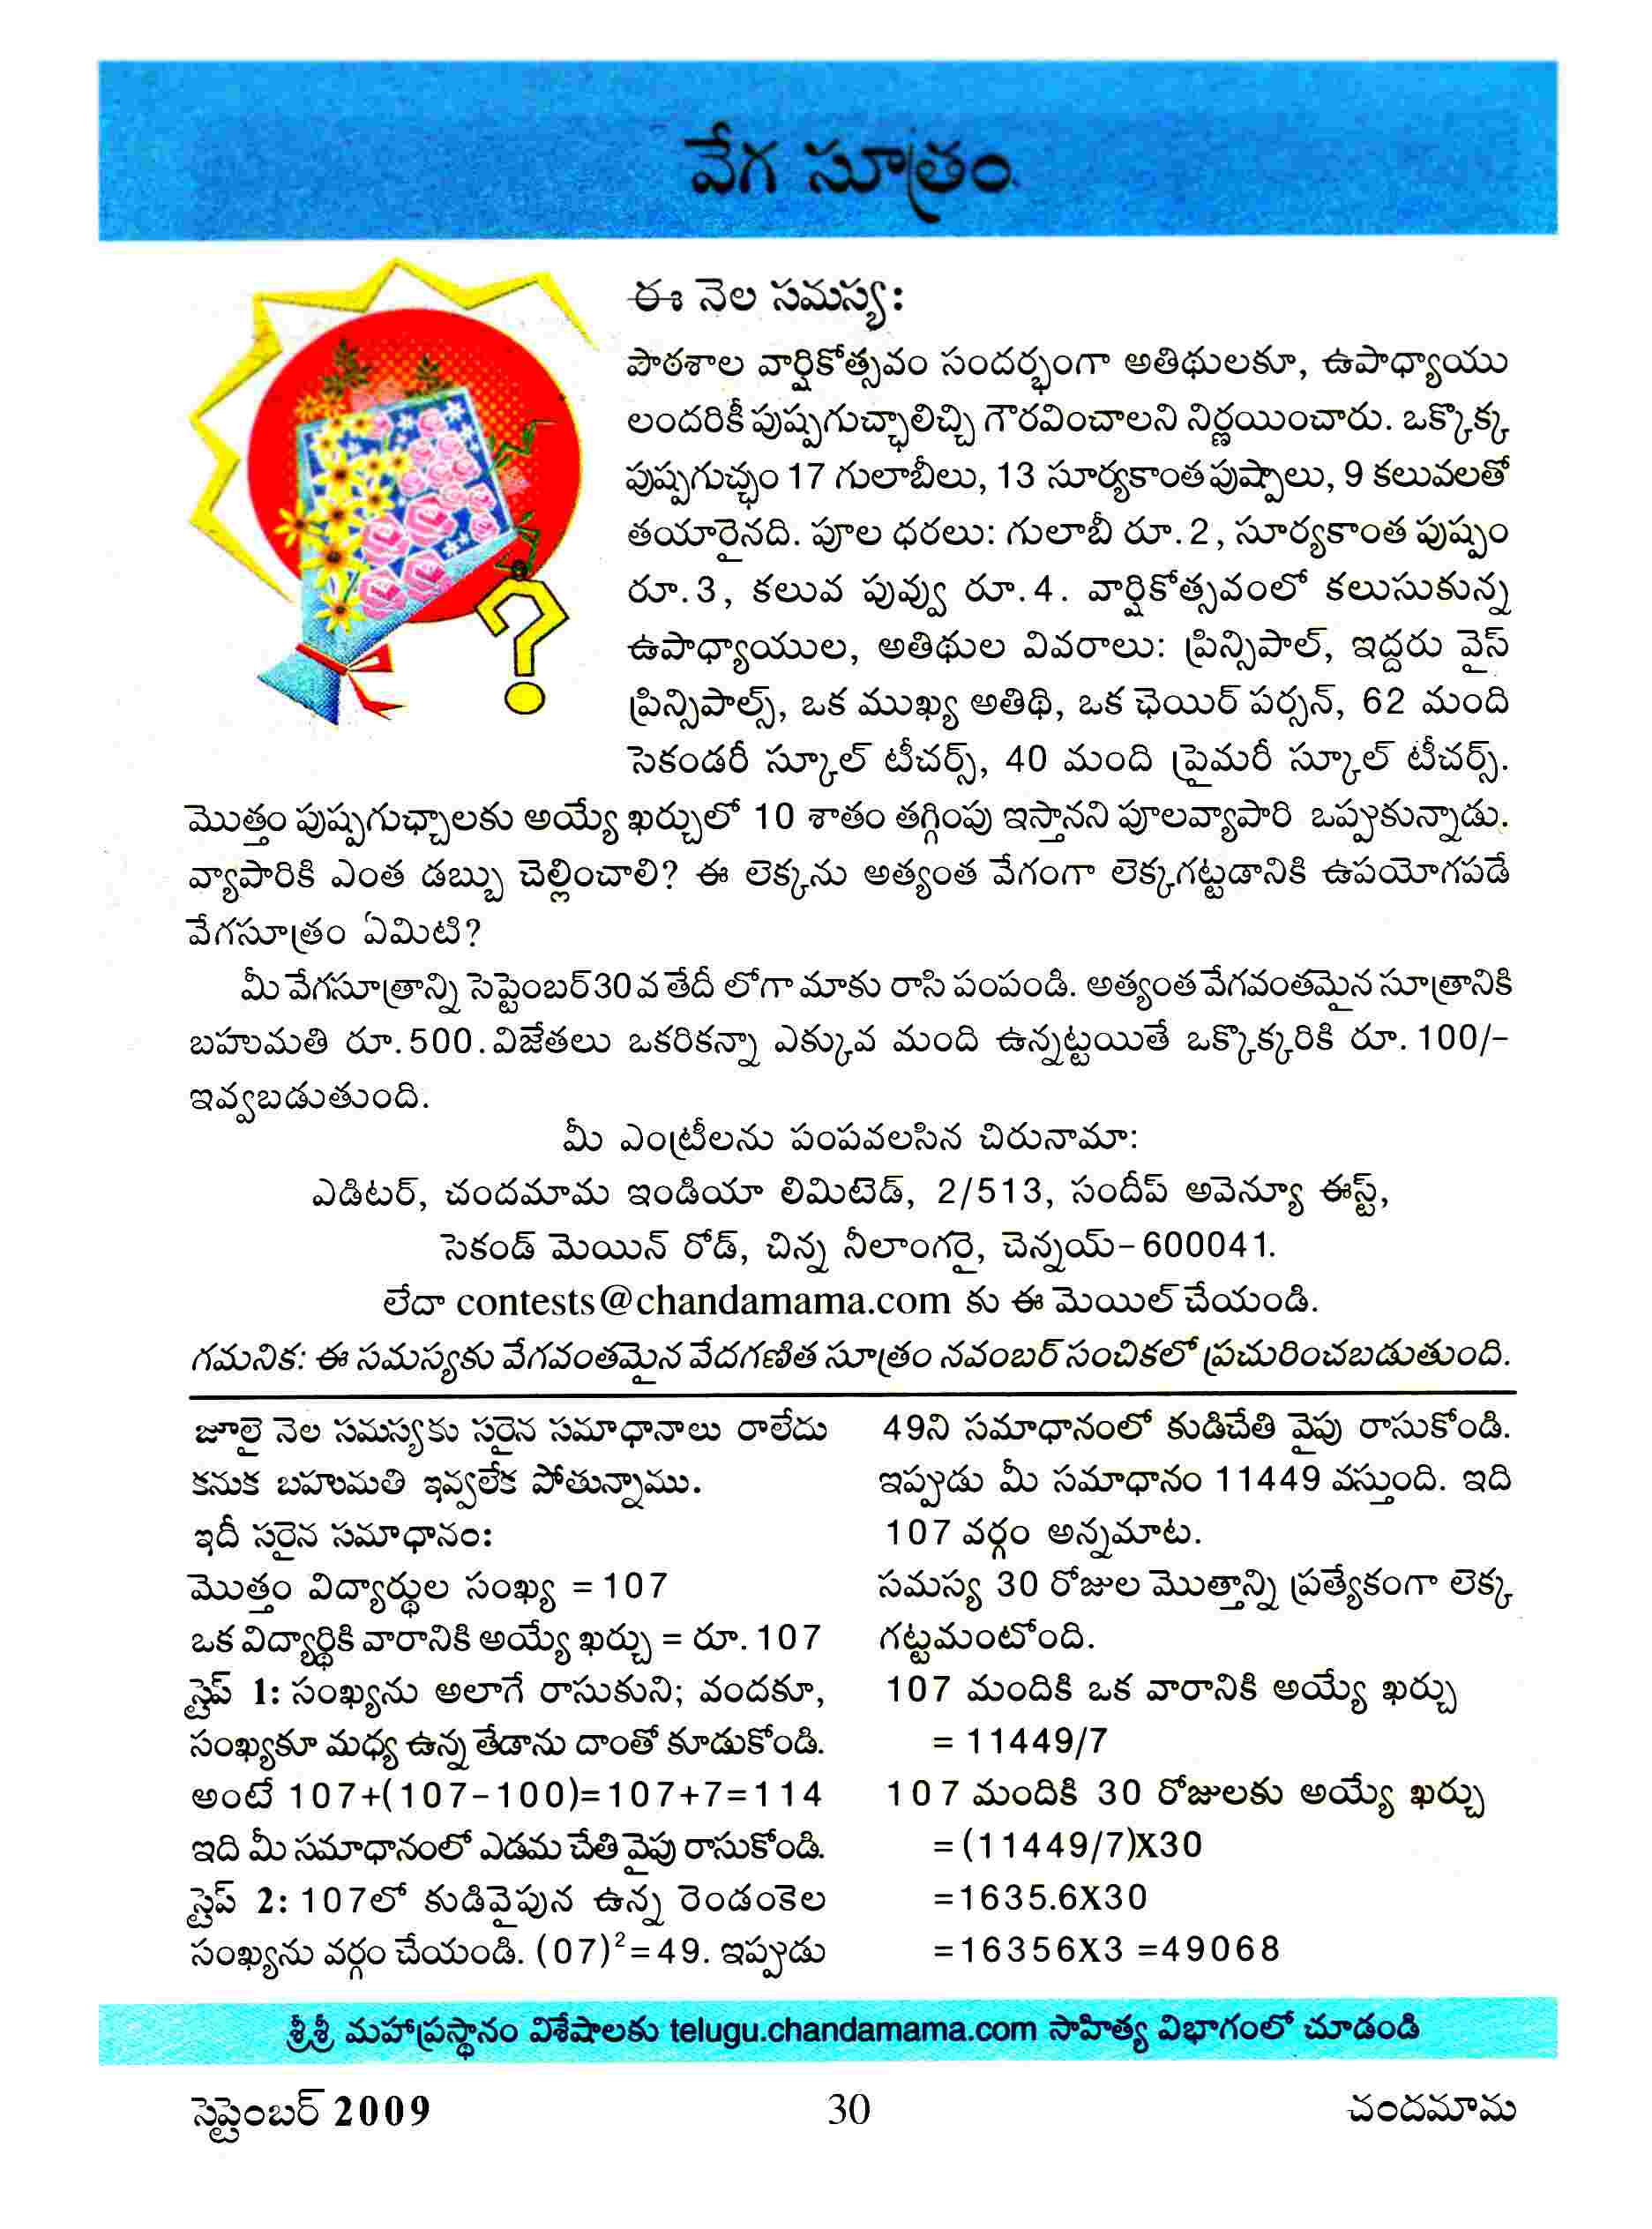 వేగ సూత్రం
ఈ నెల సమస్య:
పాఠశాల వార్షికోత్సవం సందర్భంగా అతిథులకూ, ఉపాధ్యాయు
లందరికీ పుష్పగుచ్ఛాలిచ్చి గౌరవించాలని నిర్ణయించారు. ఒక్కొక్క
పుష్పగుచ్ఛం 17 గులాబీలు, 13 సూర్యకాంత పుష్పాలు, 9 కలువలతో
తయారైనది. పూల ధరలు: గులాబీ రూ.2, సూర్యకాంత పుష్పం
రూ.3, కలువ పువ్వు రూ.4. వార్షికోత్సవంలో కలుసుకున్న
ఉపాధ్యాయుల, అతిథుల వివరాలు: ప్రిన్సిపాల్, ఇద్దరు వైస్
ప్రిన్సిపాల్స్, ఒక ముఖ్య అతిథి, ఒక ఛెయిర్ పర్సన్, 62 మంది
సెకండరీ స్కూల్ టీచర్స్, 40 మంది ప్రైమరీ స్కూల్ టీచర్స్.
మొత్తం పుష్పగుచ్ఛాలకు అయ్యే ఖర్చులో 10 శాతం తగ్గింపు ఇస్తానని పూలవ్యాపారి ఒప్పుకున్నాడు.
వ్యాపారికి ఎంత డబ్బు చెల్లించాలి? ఈ లెక్కను అత్యంత వేగంగా లెక్కగట్టడానికి ఉపయోగపడే
వేగసూత్రం ఏమిటి?
మీ వేగసూత్రాన్ని సెప్టెంబర్ 30 వ తేదీ లోగా మాకు రాసి పంపండి. అత్యంత వేగవంతమైన సూత్రానికి
బహుమతి రూ.500. విజేతలు ఒకరికన్నా ఎక్కువ మంది ఉన్నట్టయితే ఒక్కొక్కరికి రూ. 100/-
ఇవ్వబడుతుంది.
మీ ఎంట్రీలను పంపవలసిన చిరునామా:
ఎడిటర్, చందమామ ఇండియా లిమిటెడ్, 2/513, సందీప్ అవెన్యూ ఈస్ట్,
సెకండ్ మెయిన్ రోడ్, చిన్న నీలాంగరై, చెన్నయ్-600041.
లేదా contests@chandamama.com కు ఈ మెయిల్ చేయండి.
గమనిక: ఈ సమస్యకు వేగవంతమైన వేదగణిత సూత్రం నవంబర్ సంచికలో ప్రచురించబడుతుంది.
జూలై నెల సమస్యకు సరైన సమాధానాలు రాలేదు
కనుక బహుమతి ఇవ్వలేక పోతున్నాము.
ఇదీ సరైన సమాధానం:
మొత్తం విద్యార్థుల సంఖ్య = 107
ఒక విద్యార్థికి వారానికి అయ్యే ఖర్చు = రూ. 107
స్టెప్ 1: సంఖ్యను అలాగే రాసుకుని; వందకూ,
సంఖ్యకూ మధ్య ఉన్న తేడాను దాంతో కూడుకోండి.
అంటే 107+(107-100)=107+7=114
ఇది మీ సమాధానంలో ఎడమ చేతి వైపు రాసుకోండి.
స్టెప్ 2: 107లో కుడివైపున ఉన్న రెండంకెల
సంఖ్యను వర్గం చేయండి. (07)²=49. ఇప్పుడు
49ని సమాధానంలో కుడిచేతి వైపు రాసుకోండి.
ఇప్పుడు మీ సమాధానం 11449 వస్తుంది. ఇది
107 వర్గం అన్నమాట.
సమస్య 30 రోజుల మొత్తాన్ని ప్రత్యేకంగా లెక్క
గట్టమంటోంది.
107 మందికి ఒక వారానికి అయ్యే ఖర్చు
= 11449/7
107 మందికి 30 రోజులకు అయ్యే ఖర్చు
=(11449/7)X30
=1635.6X30
=16356X3 =49068
శ్రీశ్రీ మహాప్రస్థానం విశేషాలకు telugu.chandamama.com సాహిత్య విభాగంలో చూడండి
సెప్టెంబర్ 2009
30
చందమామ